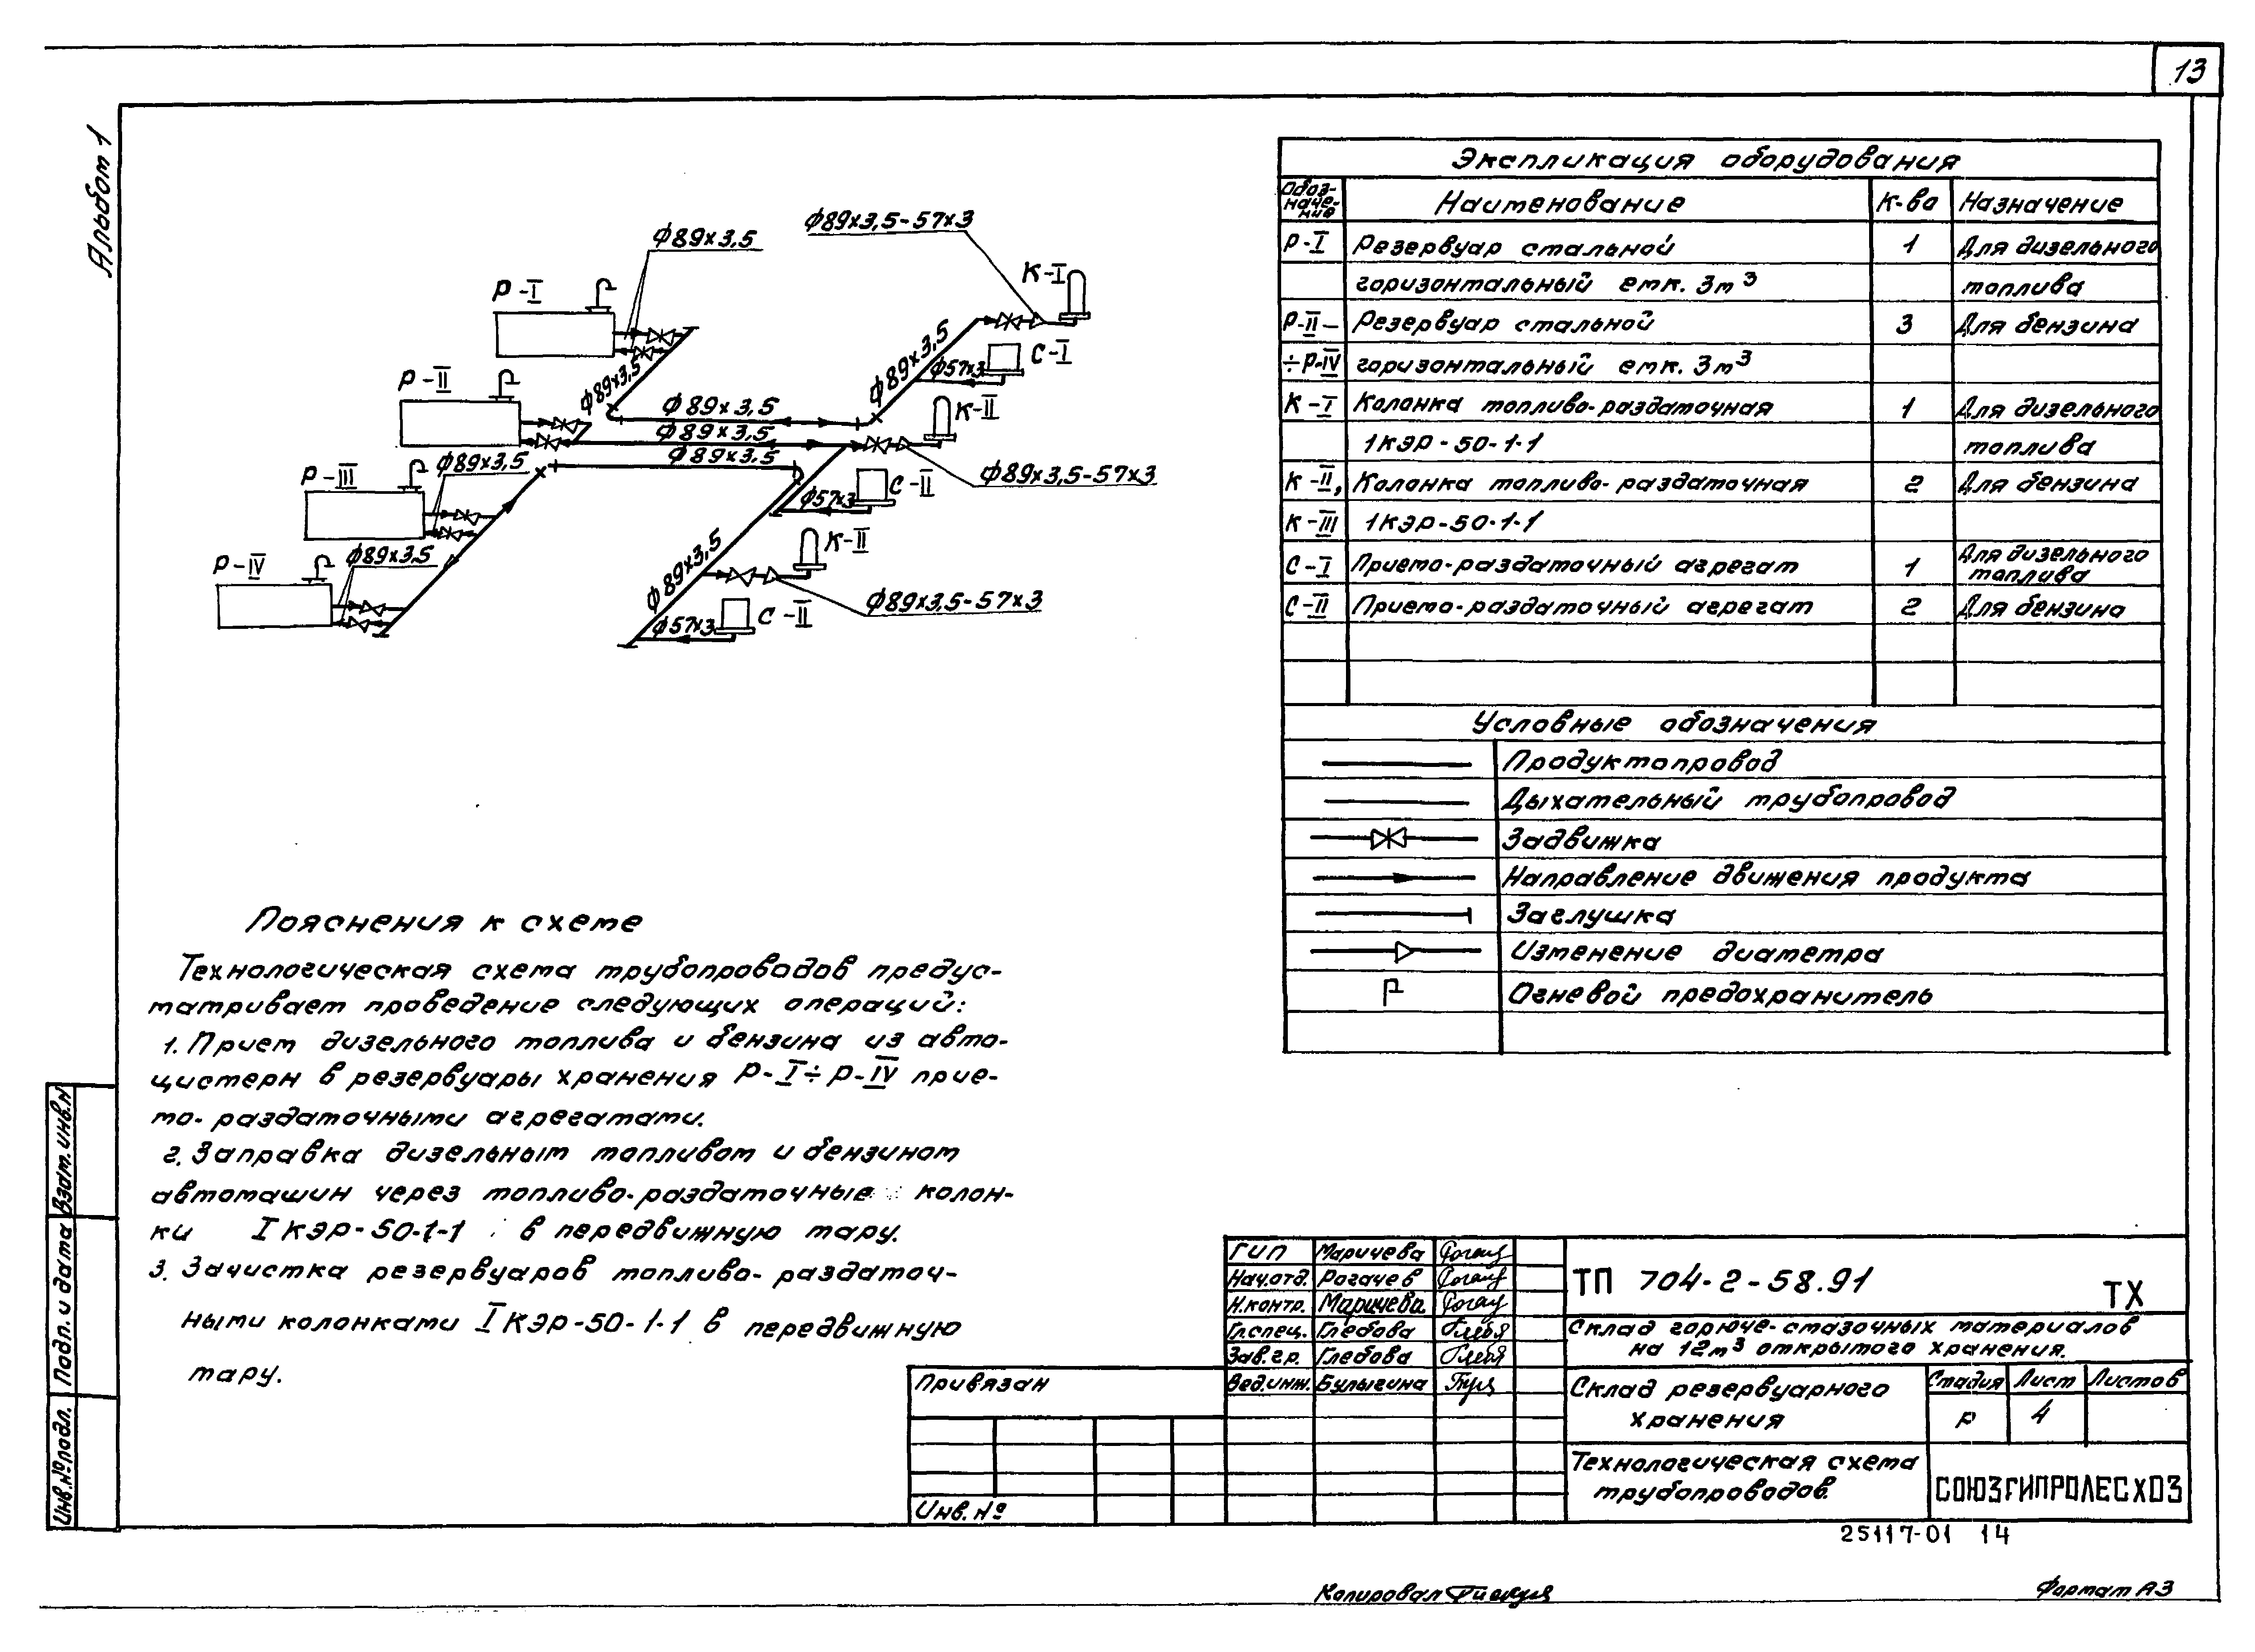 13
Альбом 1
Р-I
ф89х3,5
ф89х3,5-57х3
К-I
С-I
ф57х3
ф89х3,5
ф89х3,5
Р-II
ф89х3,5
К-II
ф89х3,5
ф89х3,5
ф89х3,5-57х3
Р-III
ф89х3,5
С-II
ф57х3
К-II
ф89х3,5
Р-IV
ф89х3,5
ф89х3,5-57х3
С-II
ф57х3
Экспликация оборудования
Обоз-
наче-
ние
Наименование К-во Назначение
Р-I Резервуар стальной 1 Для дизельного
горизонтальный емк. 3м³ топлива
Р-II– Резервуар стальной 3 Для бензина
÷Р-IV горизонтальный емк. 3м³
К-I Колонка топливо-раздаточная 1 Для дизельного
1КЭР-50-1-1 топлива
К-II, Колонка топливо-раздаточная 2 Для бензина
К-III 1КЭР-50-1-1
С-I Приемо-раздаточный агрегат 1 Для дизельного
топлива
С-II Приемо-раздаточный агрегат 2 Для бензина
Условные обозначения
Продуктопровод
Дыхательный трубопровод
Задвижка
Направление движения продукта
Заглушка
Изменение диаметра
Огневой предохранитель
Пояснения к схеме
Технологическая схема трубопроводов предус-
матривает проведение следующих операций:
1. Прием дизельного топлива и бензина из авто-
цистерн в резервуары хранения Р-I÷Р-IV прие-
мо-раздаточными агрегатами.
2. Заправка дизельным топливом и бензином
автомашин через топливо-раздаточные колон-
ки IКЭР-50-1-1 в передвижную тару.
3. Зачистка резервуаров топливо-раздаточ-
ными колонками IКЭР-50-1-1 в передвижную
тару.
Взам. инв.N
Подп. и дата
Инв.№подл.
Привязан
Инв. №
ГИП Маричева
Нач.отд. Рогачев
Н.контр. Маричева
Гл.спец. Глебова
Зав.гр. Глебова
Вед.инж. Булыгина
ТП 704-2-58.91 ТХ
Склад горюче-смазочных материалов
на 12м³ открытого хранения.
Склад резервуарного
хранения
Стадия Лист Листов
Р 4
Технологическая схема
трубопроводов.
СОЮЗГИПРОЛЕСХОЗ
25117-01 14
Копировал
Формат А3